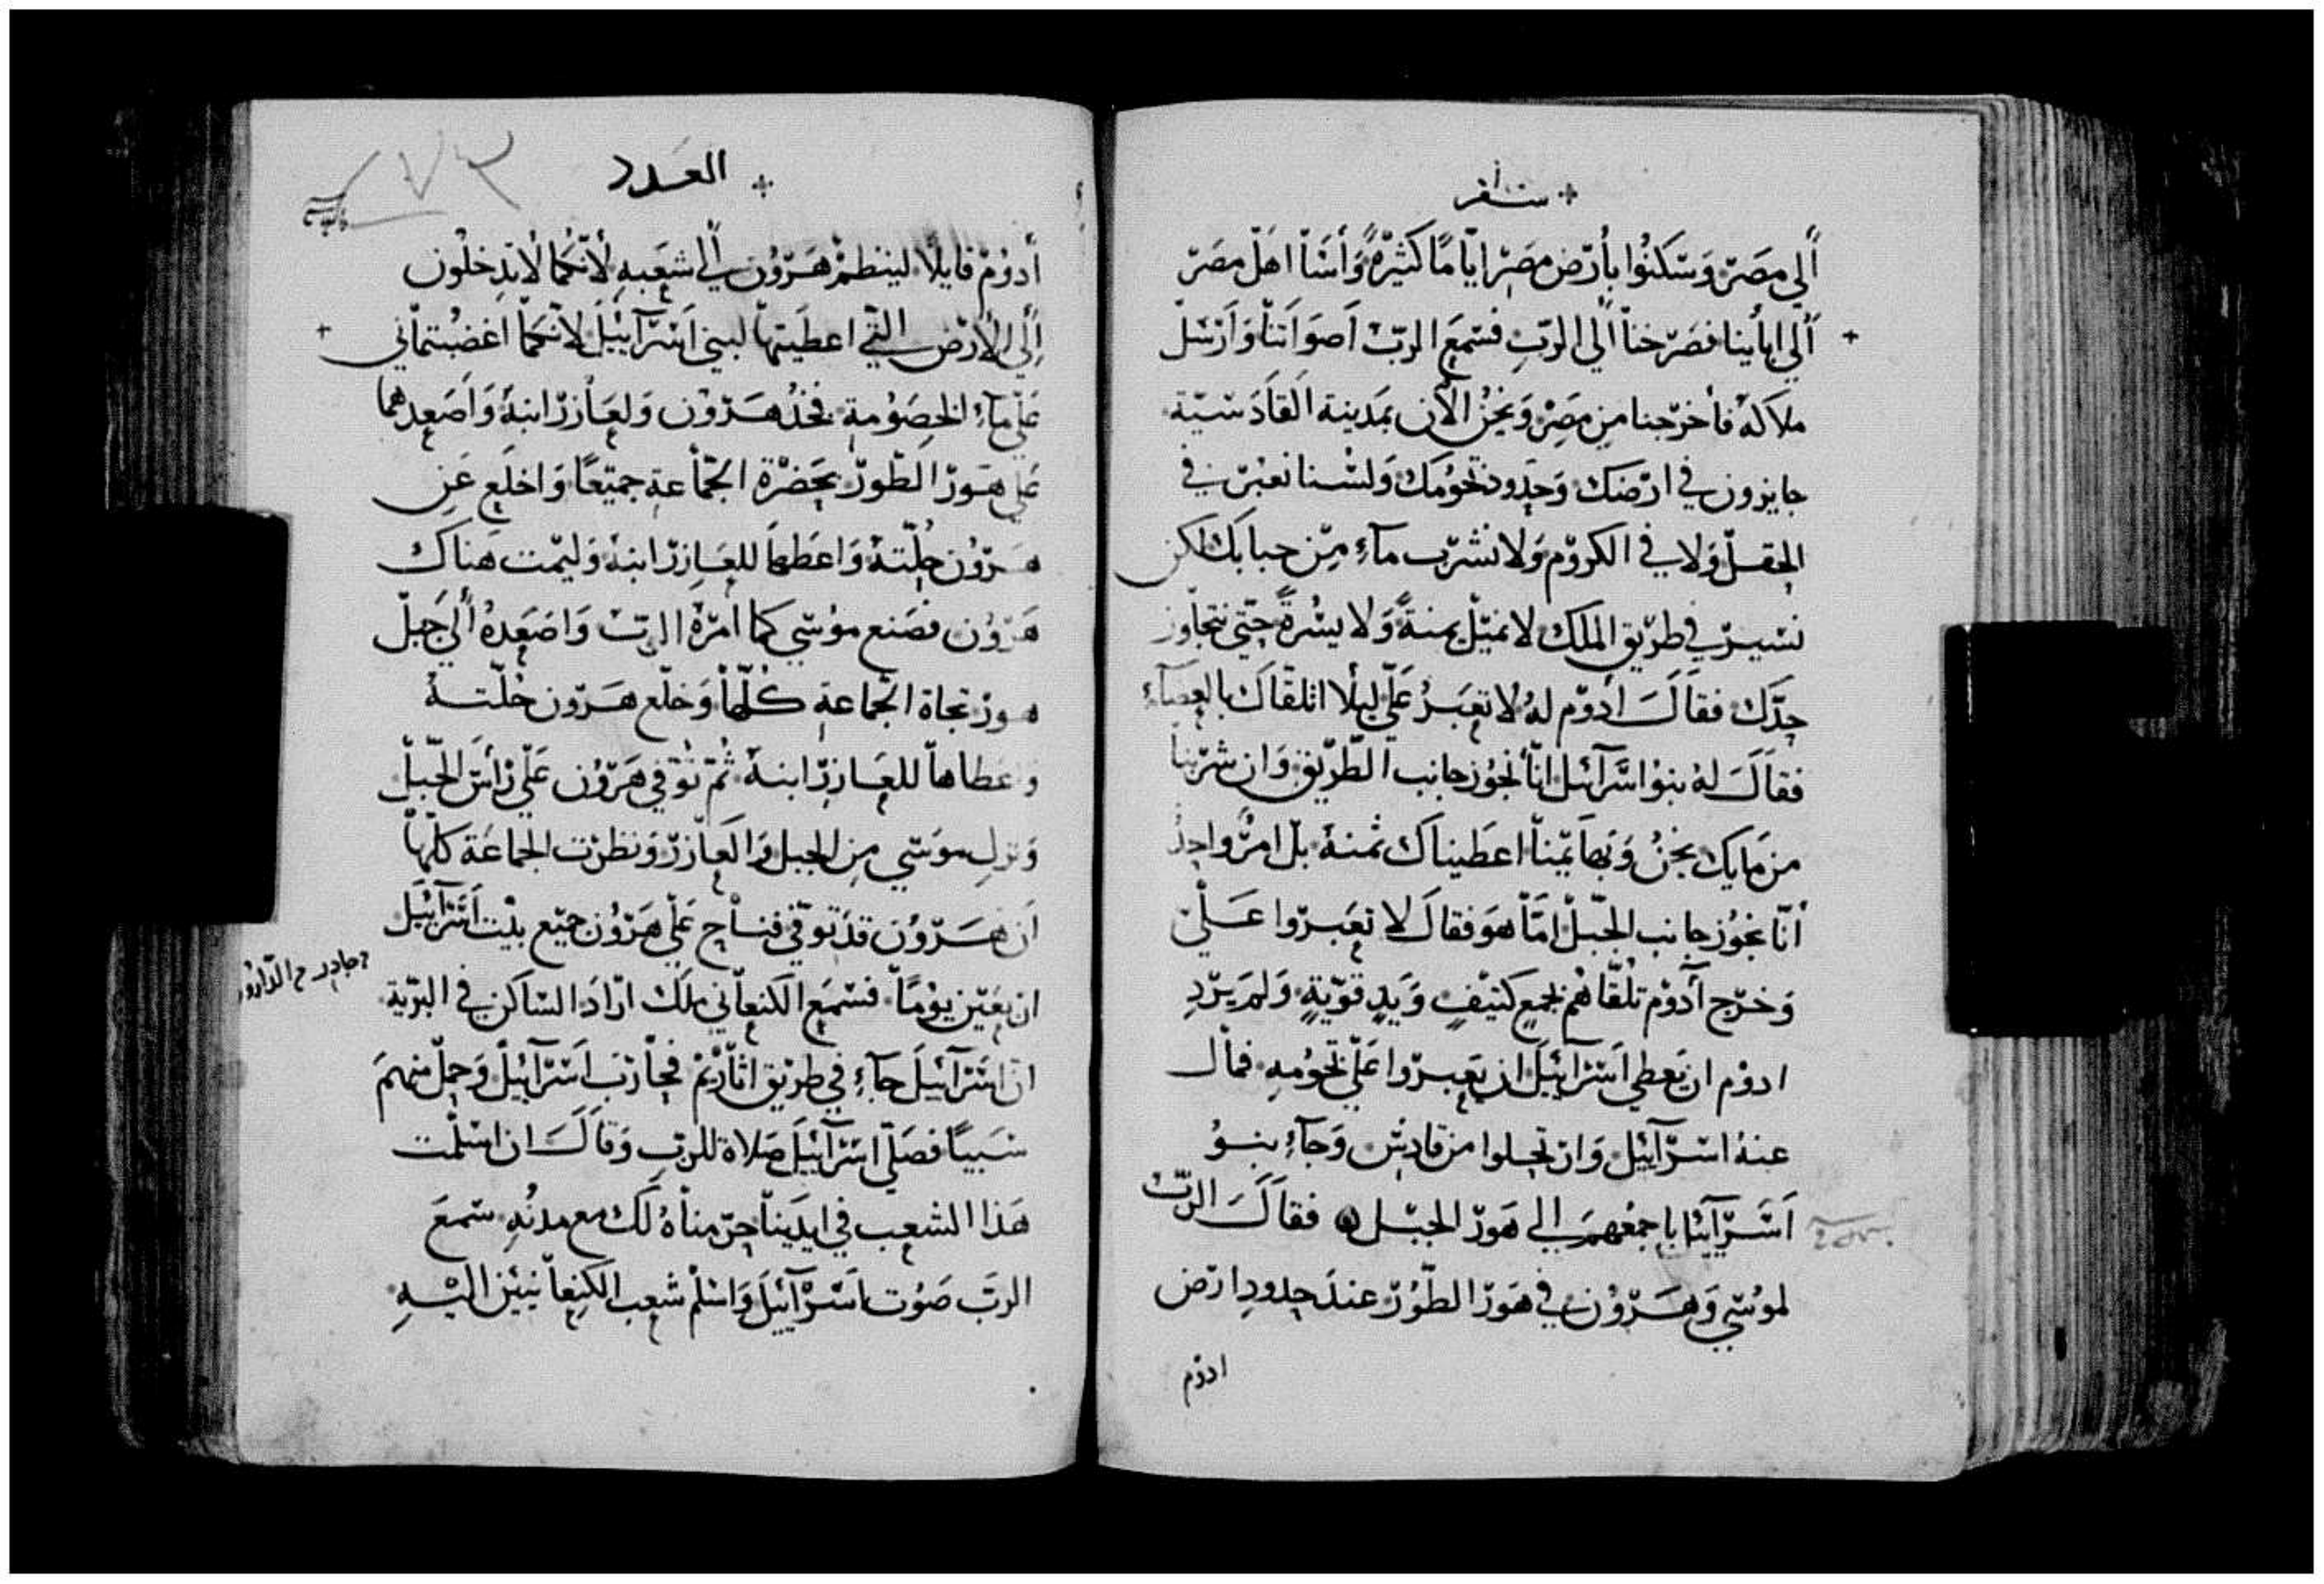 سفر
ألي مصر وسكنوا بأرض مصر اياما كثيرة وأسآ اهل مصر
ألي ابأينا فصرخنا ألي الرب فسمع الرب اصواتنا وارسل
ملاكه فأخرجنا من مصر ونحن الأن بمدينة القادسية
جايزون في ارضك وحدود تخومك ولسنا نعبر في
الحقل ولا في الكروم ولا نشرب مآء من جبابك لكن
نسير في طريق الملك لا نميل يمنة ولا يسرة حتي نتجاوز
حدك فقال ادوم له لا تعبر علي ليلا اتلقاك بالعصآء
فقال له بنوا اسرآئل انا نجوز جانب الطريق وان شربنا
من مايك نحن وبهايمنا اعطيناك ثمنه بل امر واحد
أنا نجوز جانب الجبل امّا هو فقال لا تعبروا علي
وخرج آدوم تلقاهم بجمع كثيف ويد قوية ولم يرد
ادوم ان يعطي اسرآئيل ان يعبروا علي تخومه فمال
عنه اسرآئيل وارتحلوا من قادش وجآء بنو
اسرآئيل باجمعهم الي هور الجبل فقال الرب
لموسي وهرون في هور الطور عند حدود ارض
ادوم
العدد
٧٣
أدوم قايلا لينظم هرون الي شعبه لأنكما لا تدخلون
إلي الأرض التي اعطيتها لبني اسرآئيل لانكما اغضبتماني
علي مآء الخصومة فخذ هرون ولعازر ابنه واصعدهما
علي هور الطور بحضرة الجماعة جميعا واخلع عن
هرون حلته واعطها للعازر ابنه وليمت هناك
هرون فصنع موسي كما امره الرب واصعده ألي جبل
هور تجاة الجماعة كلها وخلع هرون حلته
واعطاها للعازر ابنه ثم توفي هرون علي رأس الجبل
ونزل موسي من الجبل والعازر ونظرت الجماعة كلها
ان هرون قد توفي فناح علي هرون جميع بيت اسرآئيل
ثلثين يوما فسمع الكنعاني ملك اراد الساكن في البرية
ان اسرآئيل جآء في طريق اثاريم فحارب اسرآئيل وحمل منهم
سبيا فصلي اسرآئيل صلاة للرب وقال ان اسلمت
هذا الشعب في ايدينا حرمناه لك مع مدنه سمع
الرب صوت اسرآئيل واسلم شعب الكنعانيين اليه